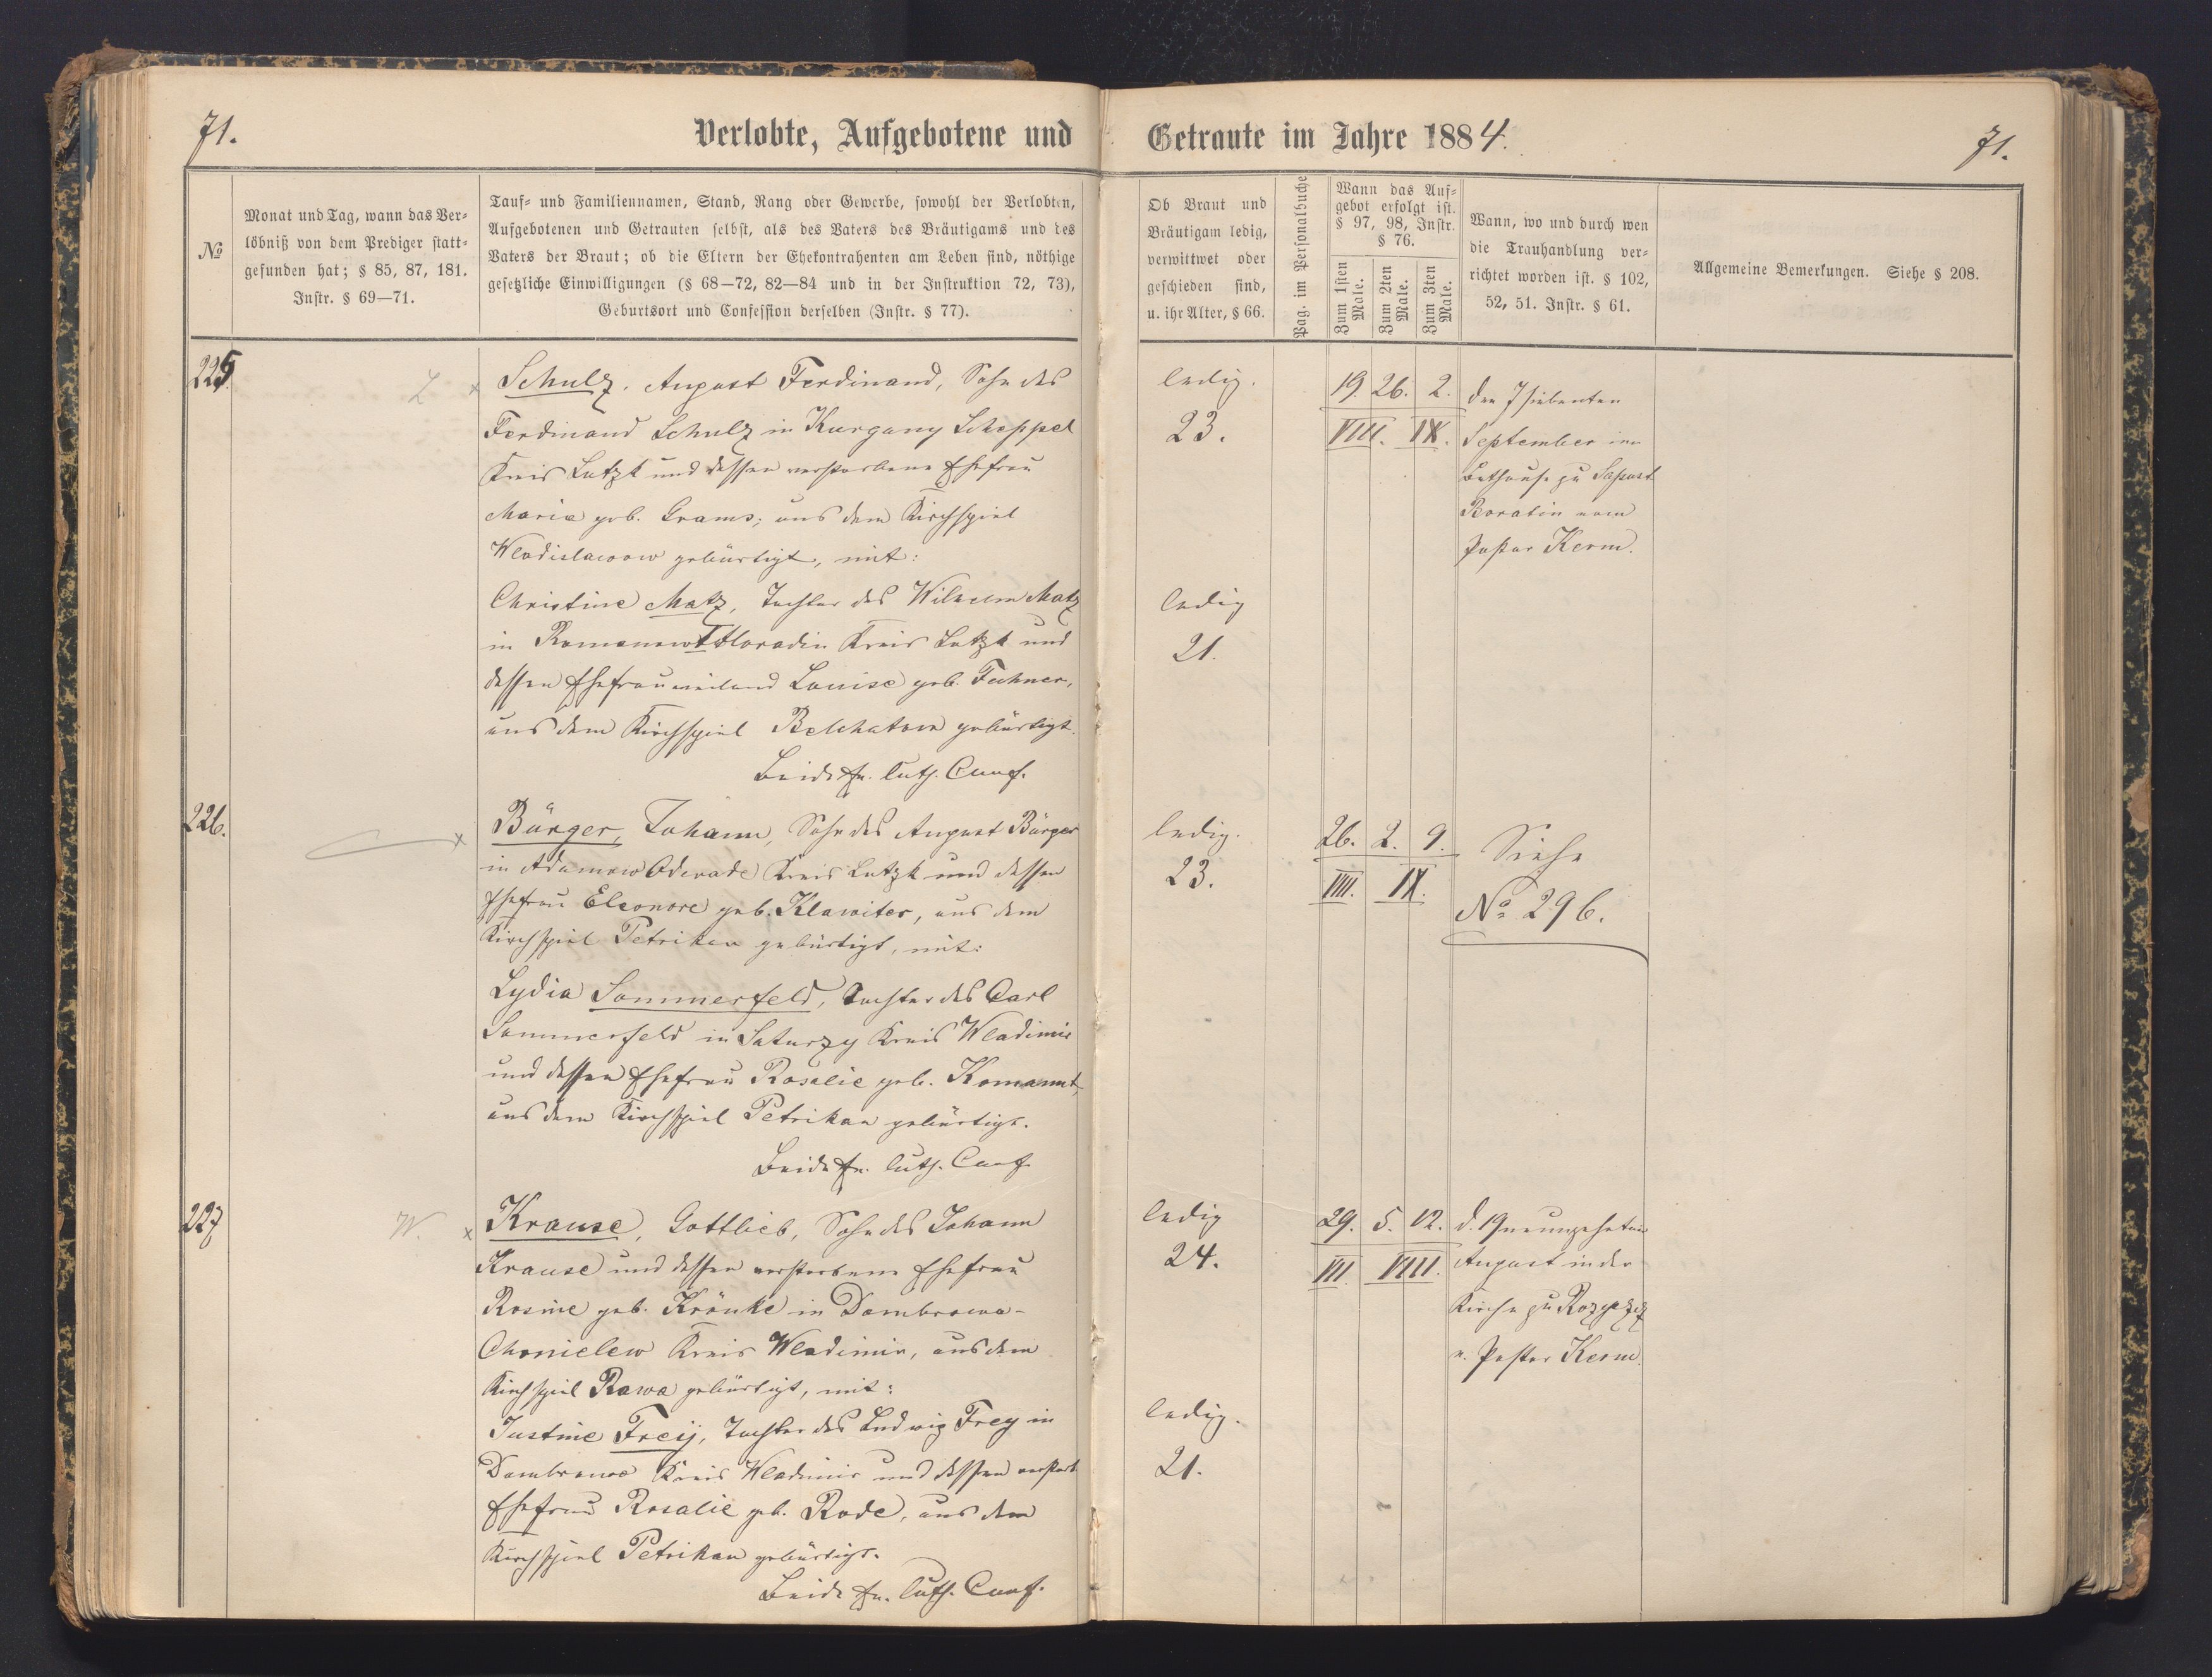 71.
Verlobte, Aufgebotene und
№
Monat und Tag, wann das Ver-
löbniß von dem Prediger statt-
gefunden hat; § 85, 87, 181.
Instr. § 69—71.
Tauf- und Familiennamen, Stand, Rang oder Gewerbe, sowohl der Verlobten,
Aufgebotenen und Getrauten selbst, als des Vaters des Bräutigams und des
Vaters der Braut; ob die Eltern der Ehekontrahenten am Leben sind, nöthige
gesetzliche Einwilligungen (§ 68—72, 82—84 und in der Instruktion 72, 73),
Geburtsort und Confession derselben (Instr. § 77).
225.
Schulz, August Ferdinand, Sohn des
Ferdinand Schulz in Kurgany Scheppel
Kreis Lutzk und dessen verstorbene Ehefrau
Maria geb. Grams; aus dem Kirchspiel
Wladislawow gebürtigt, mit:
Christine Matz, Tochter des Wilhelm Matz
in Romanow Kreis Lutzk und
dessen Ehefrau weiland Louise geb. Fechner,
aus dem Kirchspiel Belchatow gebürtigt.
Beide ev. luth. Conf.
226.
x Bürger, Johann, Sohn des August Bürger
in Adamow Oderade Kreis Lutzk und dessen
Ehefrau Eleonore geb. Klawiter, aus dem
Kirchspiel Petrikau gebürtigt, mit:
Lydia Sommerfeld, Tochter des Carl
Sommerfeld in Saturzy Kreis Wladimir
und dessen Ehefrau Rosalie geb.
aus dem Kirchspiel Petrikau gebürtigt.
Beide ev. luth. Conf.
227
W. x Krause, Gottlieb, Sohn des Johann
Krause und dessen verstorbene Ehefrau
Rosine geb. Krönke in Dombrowa-
Chonielew Kreis Wladimir, aus dem
Kirchspiel Rawa gebürtigt, mit:
Justine Freij, Tochter des Ludwig Frey in
Dombrowa Kreis Wladimir und dessen verstorb.
Ehefrau Rosalie geb. Rode, aus dem
Kirchspiel Petrikau gebürtigt.
Beide ev. luth. Conf.
Getraute im Jahre 1884.
71.
Ob Braut und
Bräutigam ledig,
verwittwet oder
geschieden sind,
u. ihr Alter, § 66.
Pag. im Personalbuche
Wann das Auf-
gebot erfolgt ist.
§ 97, 98, Instr.
§ 76.
Zum 1sten
Male.
Zum 2ten
Male.
Zum 3ten
Male.
Wann, wo und durch wen
die Trauhandlung ver-
richtet worden ist. § 102,
52, 51. Instr. § 61.
Allgemeine Bemerkungen. Siehe § 208.
ledig.
23.
19. 26. 2.
VIII. IX.
den 7 siebenten
September im
Bethause zu Sapust
Boratin vom
Pastor Kerm.
ledig
21.
ledig.
23.
26. 2. 9.
VIII. IX.
Siehe
No 296.
ledig
24.
29. 5. 12.
VII. VIII.
d. 19 neunzehnten
August in der
Kirche zu Rozyszcz
v. Pastor Kerm.
ledig.
21.